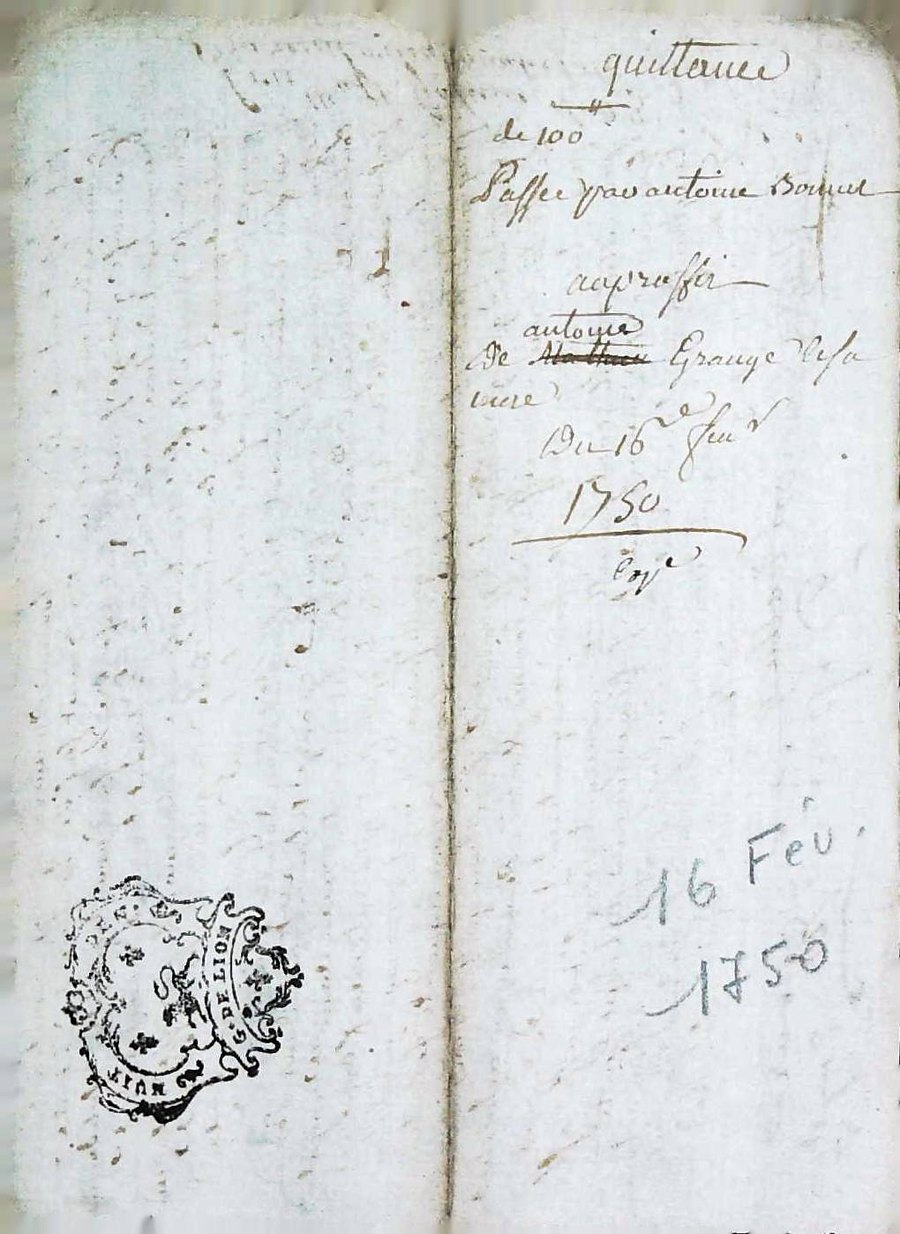 quittance
de 100 ᵗᵗ
Passee par antoine Bonnet
au proffit
antoine
de Mathieu Grange et sa
mere
Du 16e feur
1750
Exp.e
16 Fév.
1750
G. DE LION
DEN.
HUIT